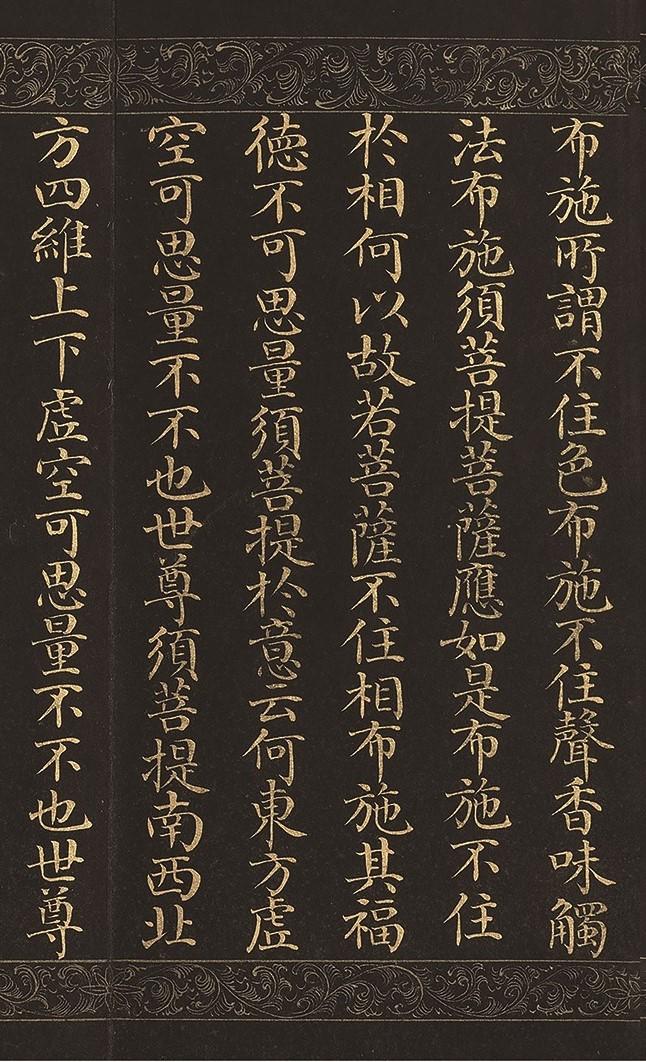 布施所謂不住色布施不住聲香味觸
法布施須菩提菩薩應如是布施不住
於相何以故若菩薩不住相布施其福
德不可思量須菩提於意云何東方虛
空可思量不不也世尊須菩提南西北
方四維上下虛空可思量不不也世尊